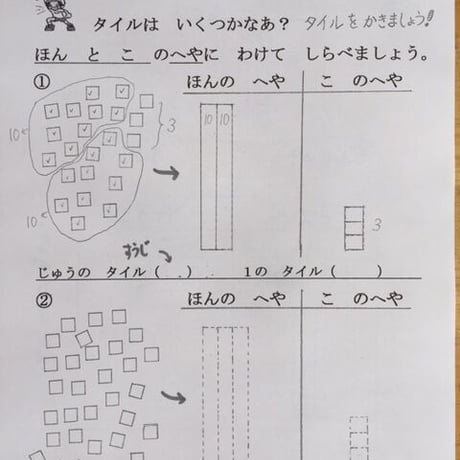 タイルは いくつかなあ? タイルをかきましょう!!
ほん と こ のへやに わけて しらべましょう。
①
ほんの へや こ のへや
10 10 10
3
10
3
すうじ
じゅうの タイル( ) 1の タイル( )
②
ほんの へや こ のへや